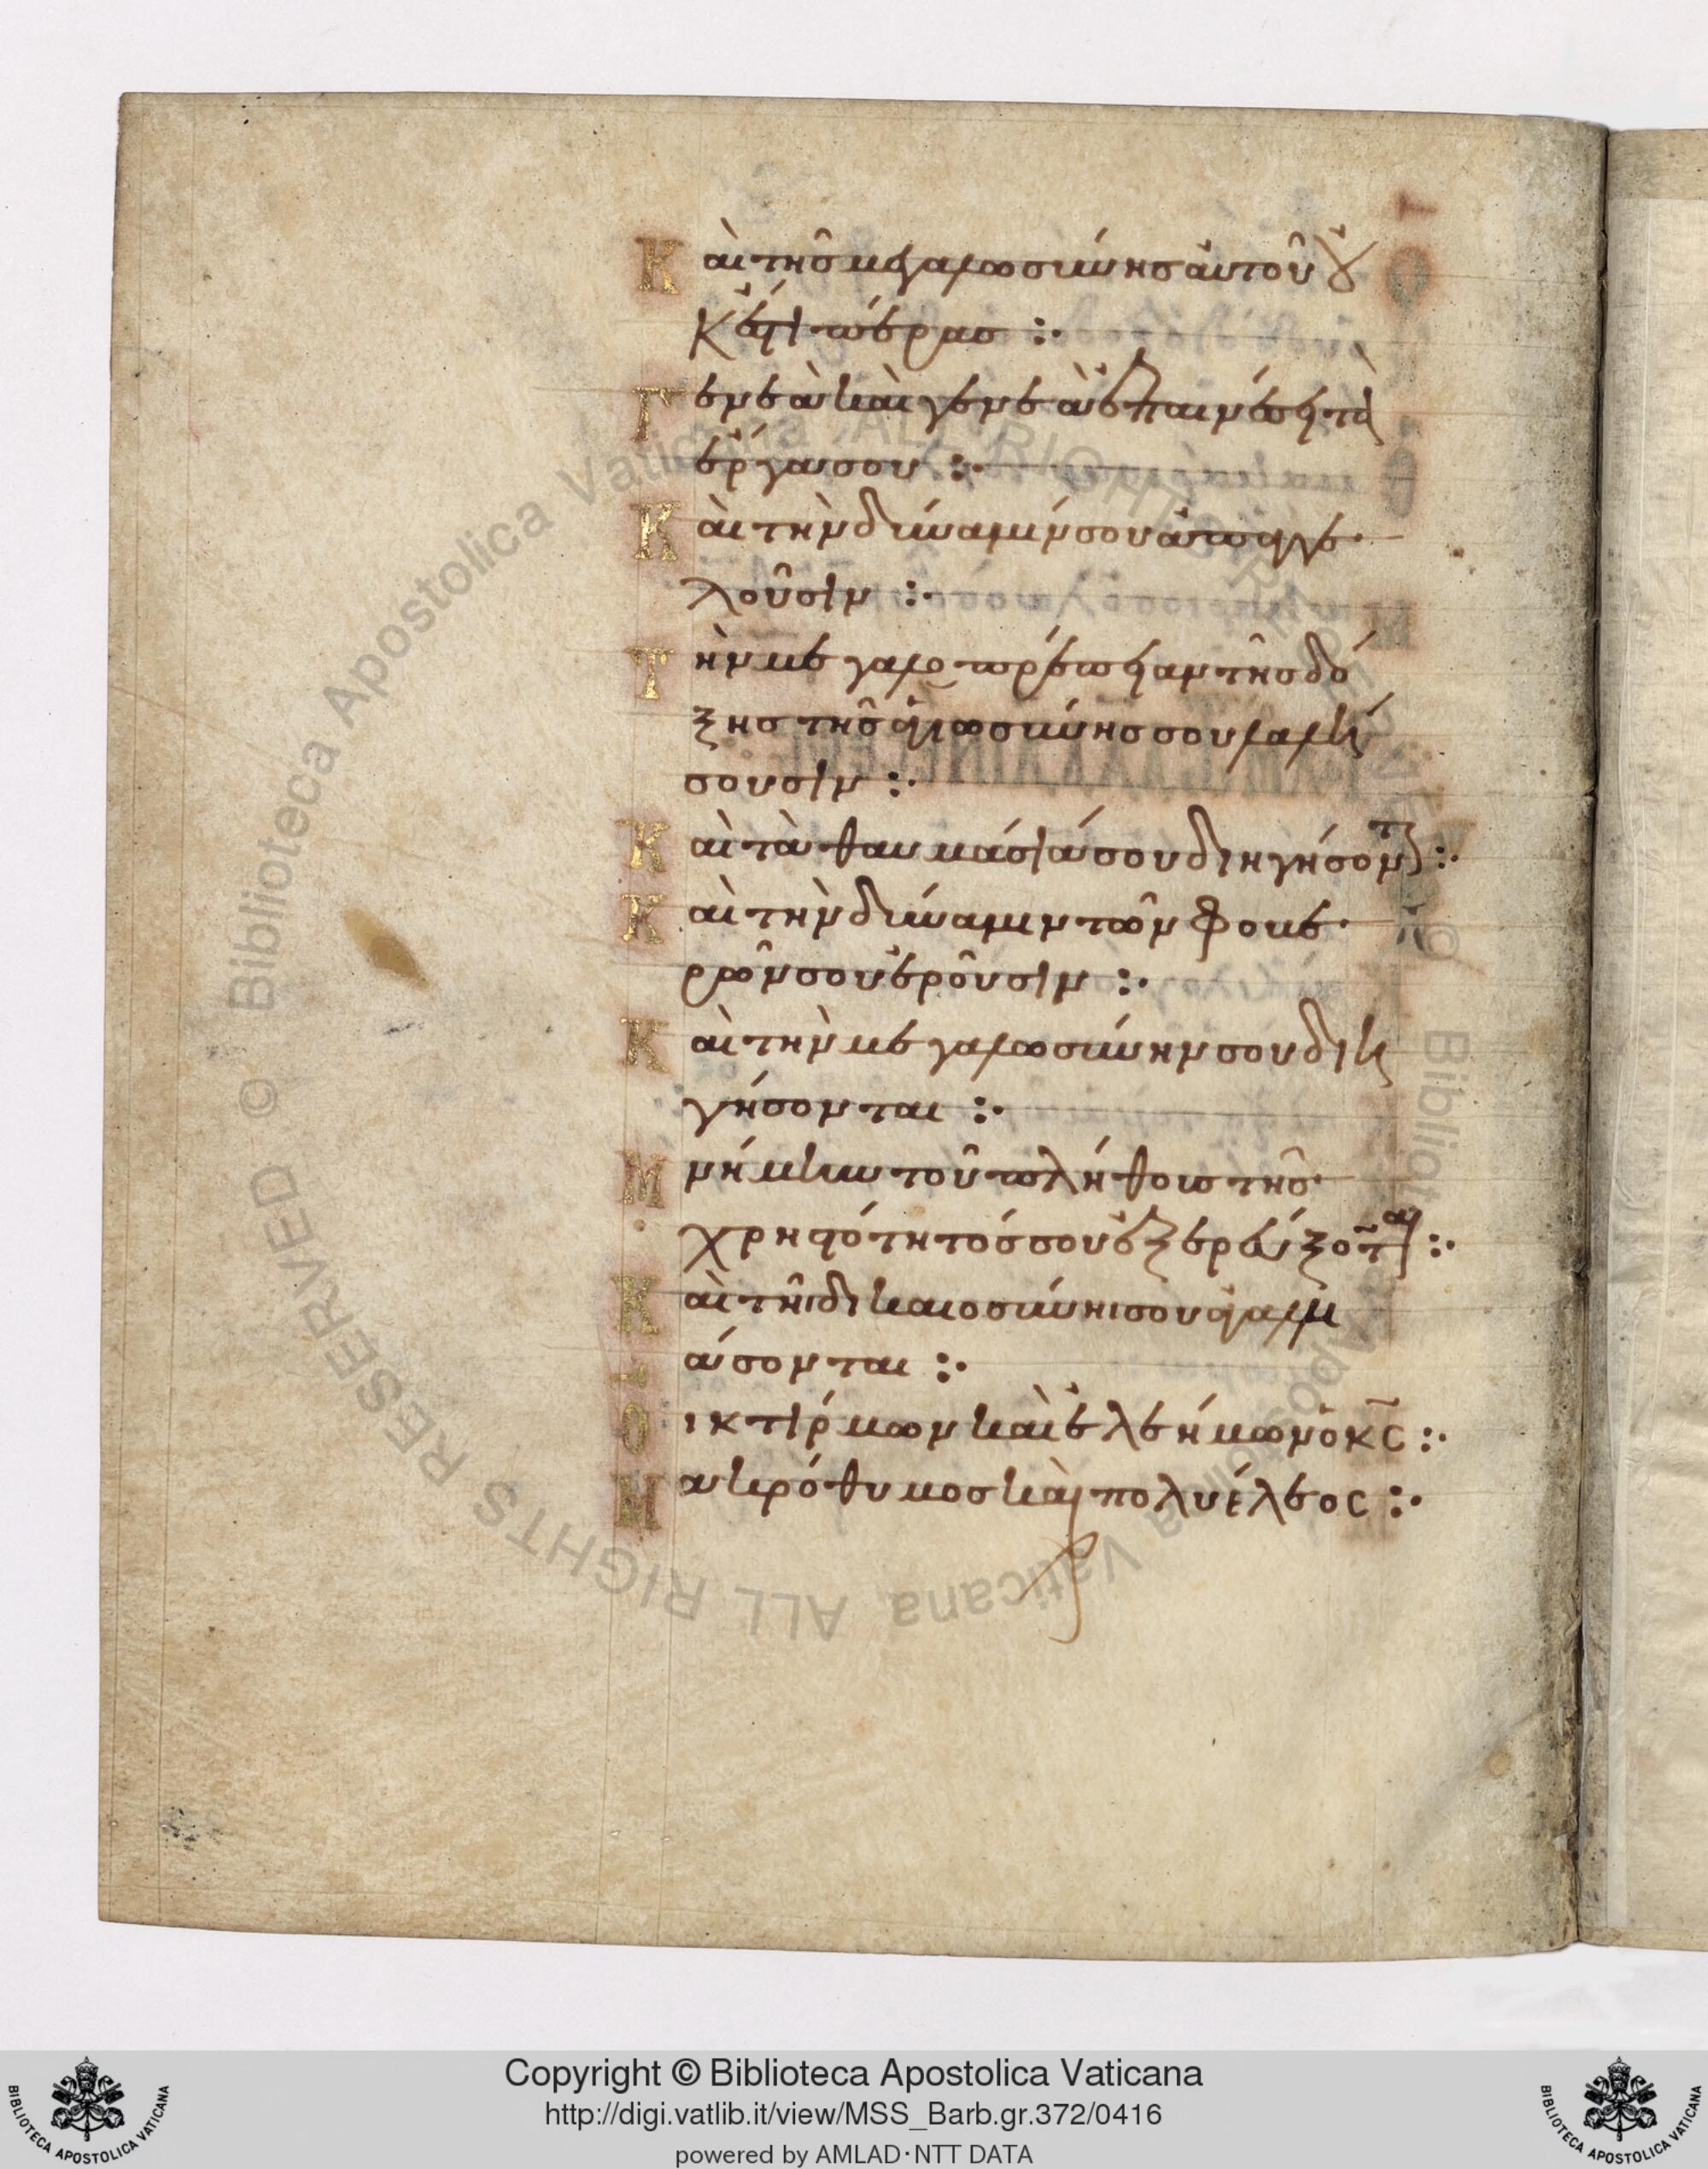 Καὶ τῆς μεγαλωσύνης αὐτοῦ οὐ
κ ἔστι πέρας :·
Γενεὰ καὶ γενεὰ ἐπαινέσει τὰ
ἔργα σου :·
Καὶ τὴν δύναμίν σου ἀπαγγε
λοῦσιν :·
Τὴν μεγαλοπρέπειαν τῆς δό
ξης τῆς ἁγιωσύνης σου λαλή
σουσιν :·
Καὶ τὰ θαυμάσιά σου διηγήσοντ :·
Καὶ τὴν δύναμιν τῶν φοβε
ρῶν σου ἐροῦσιν :·
Καὶ τὴν μεγαλωσύνην σου διη
γήσονται :·
Μνήμην τοῦ πλήθους τῆς
χρηστότητός σου ἐξερεύξοται :·
Καὶ τῆι δικαιοσύνηι σου ἀγαλλι
άσονται :·
Οἰκτίρμων καὶ ἐλεήμων ὁ κς :·
Μακρόθυμος καὶ πολυέλεος :·
© Biblioteca Apostolica Vaticana ALL RIGHTS RESERVED
Copyright © Biblioteca Apostolica Vaticana
http://digi.vatlib.it/view/MSS_Barb.gr.372/0416
powered by AMLAD·NTT DATA
BIBLIOTECA APOSTOLICA VATICANA
BIBLIOTECA APOSTOLICA VATICANA